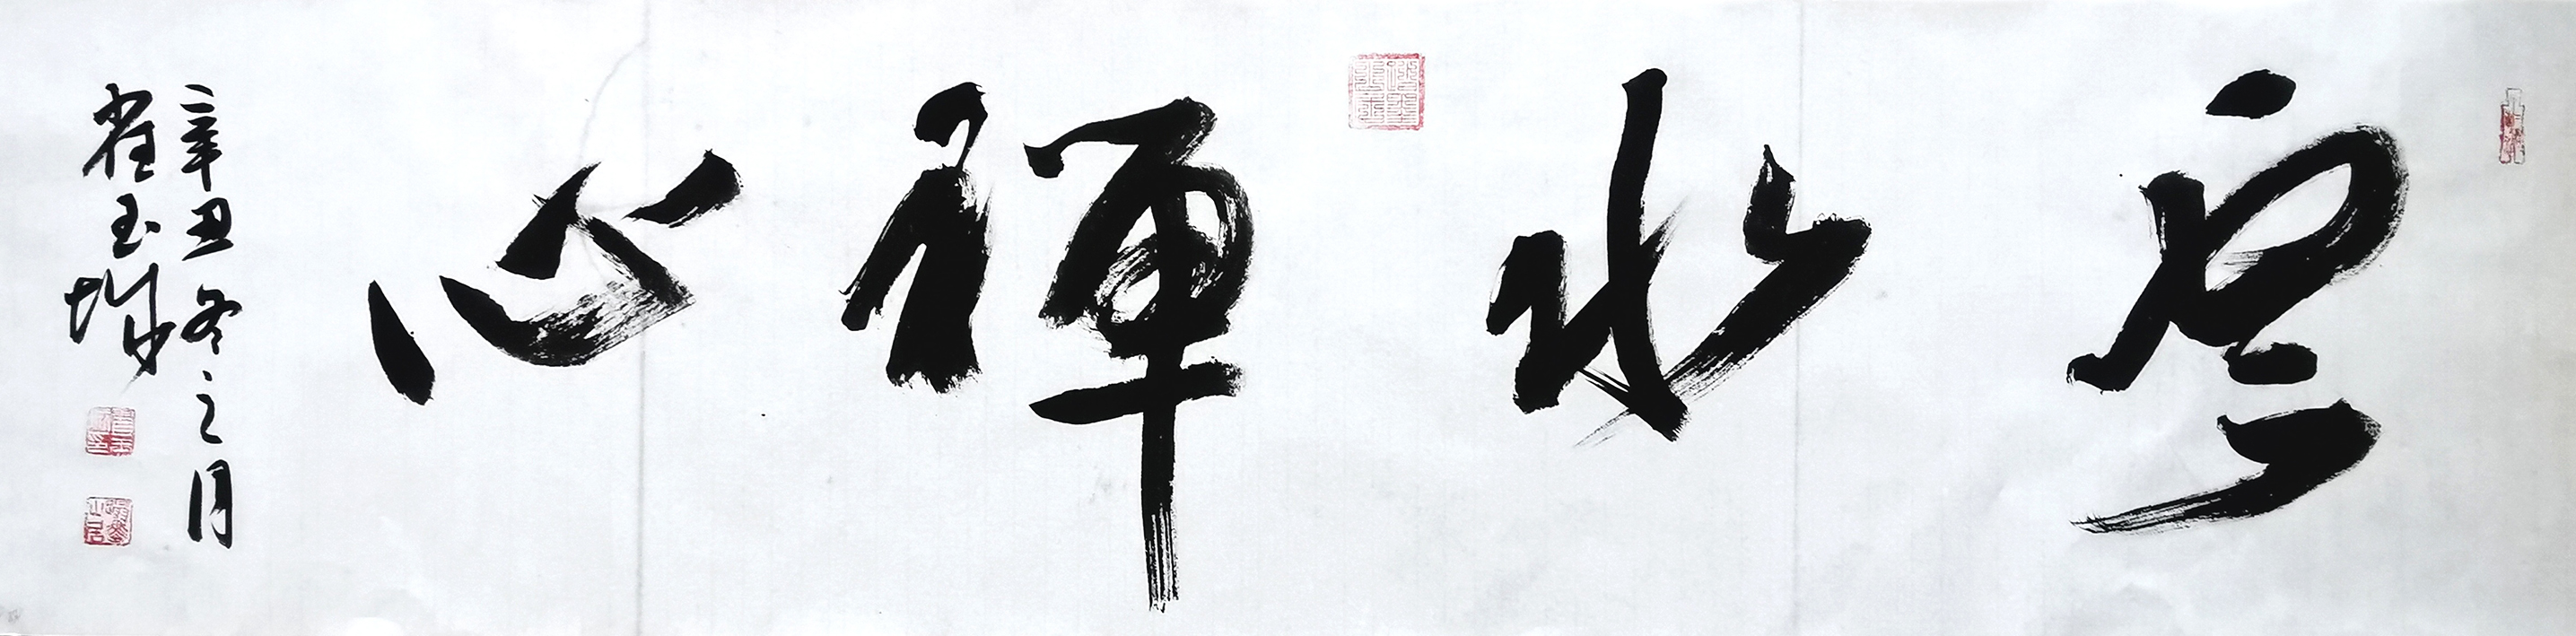 雲水禅心
辛丑冬之月
崔玉坤